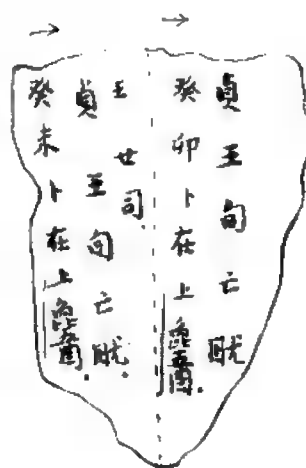 癸未卜在上
貞王旬亡畎.
王廿司.
癸卯卜在上
貞王旬亡畎